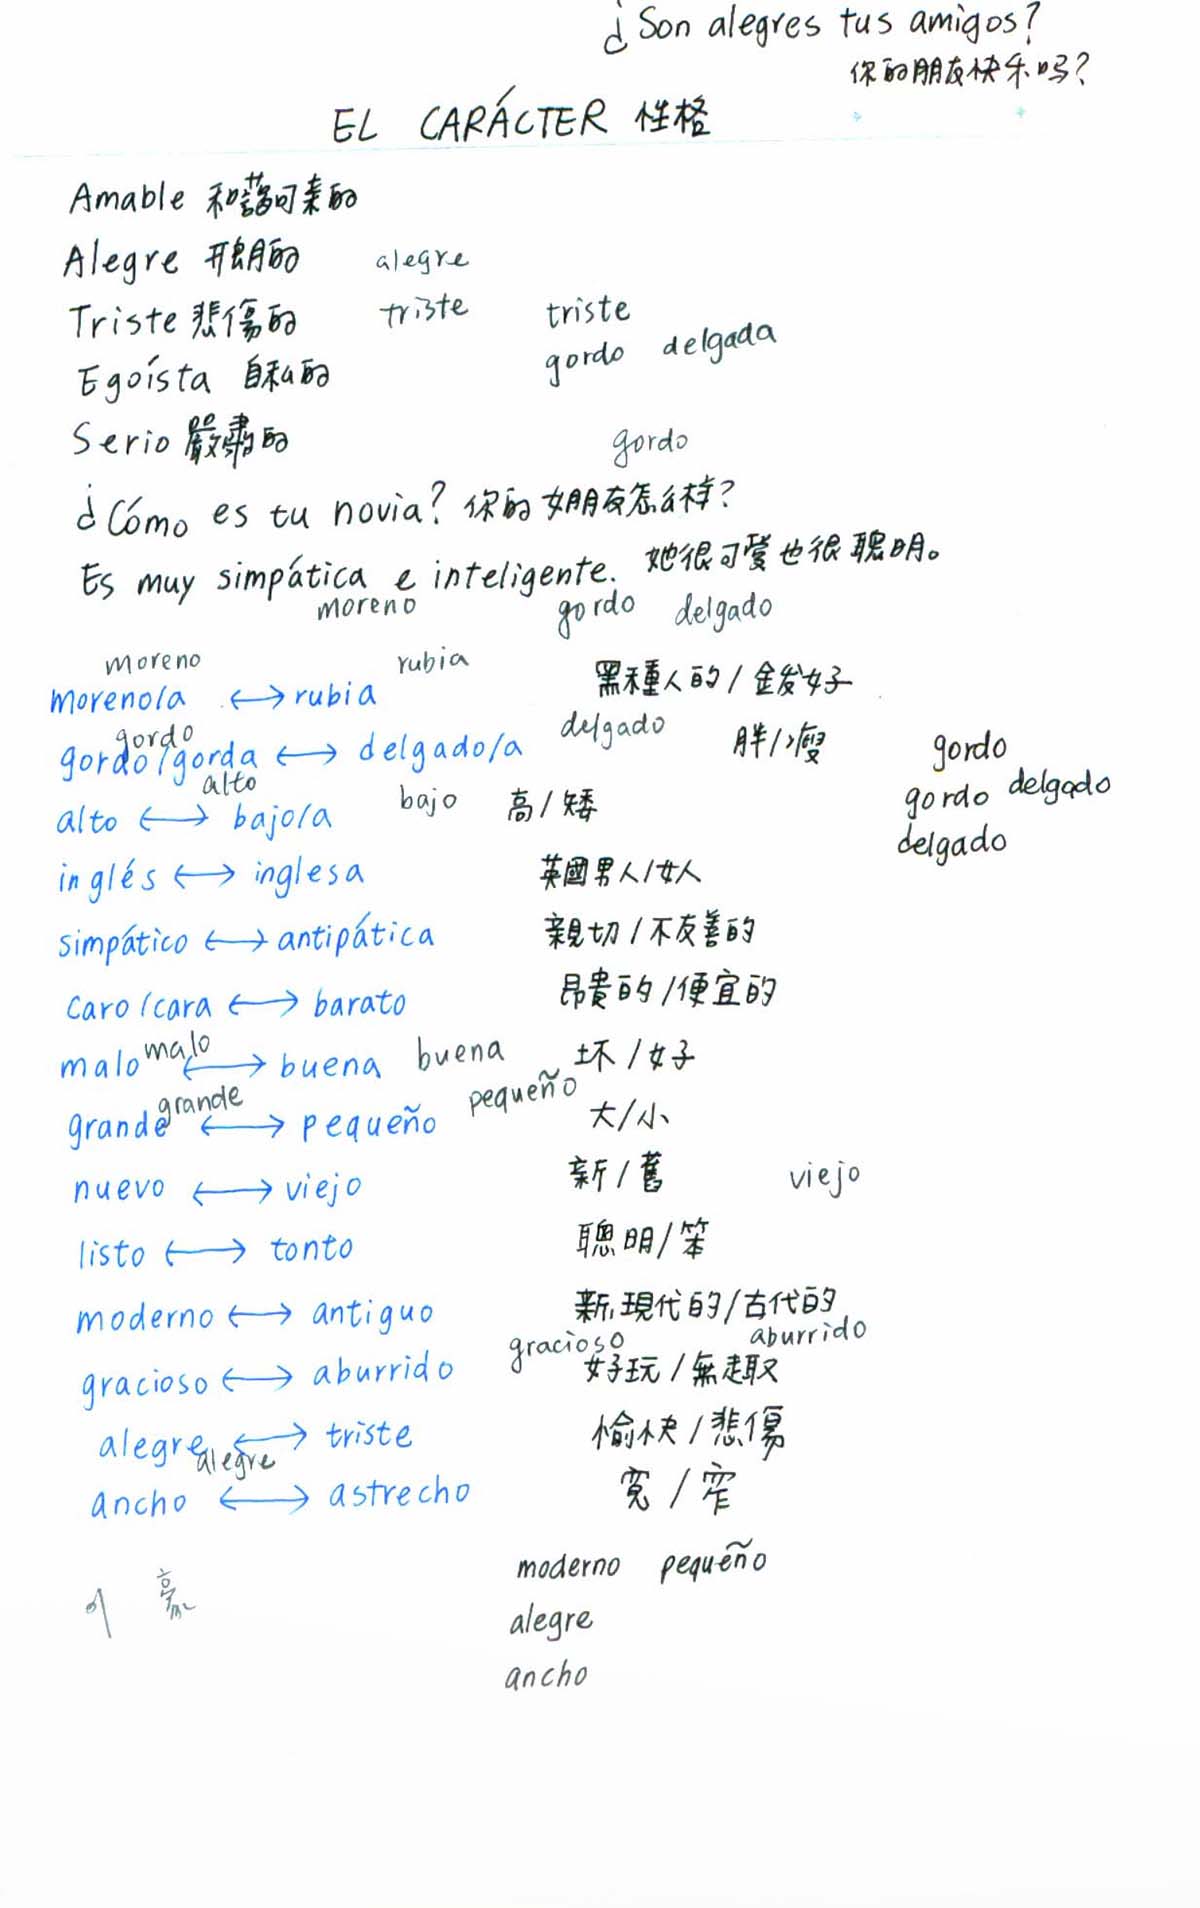 ¿Son alegres tus amigos?
你的朋友快乐吗?
EL CARÁCTER 性格
Amable 和藹可亲的
Alegre 开朗的 alegre
Triste 悲傷的 triste triste
Egoísta 自私的 gordo delgada
Serio 嚴肅的 gordo
¿Cómo es tu novia? 你的女朋友怎么样?
Es muy simpática e inteligente. 她很可愛也很聰明。
moreno gordo delgado
moreno rubia
moreno/a ↔ rubia 黑種人的/金发女子
gordo delgado
gordo/gorda ↔ delgado/a 胖/瘦 gordo
alto bajo gordo delgado
alto ↔ bajo/a 高/矮 delgado
inglés ↔ inglesa 英國男人/女人
simpático ↔ antipática 親切/不友善的
caro/cara ↔ barato 昂貴的/便宜的
malo ↔ buena malo buena 坏/好
grande ↔ pequeño grande pequeño 大/小
nuevo ↔ viejo 新/舊 viejo
listo ↔ tonto 聰明/笨
moderno ↔ antiguo 新,現代的/古代的
gracioso aburrido
gracioso ↔ aburrido 好玩/無趣
alegre ↔ triste 愉快/悲傷
alegre
ancho ↔ astrecho 寬/窄
moderno pequeño
alegre
ancho